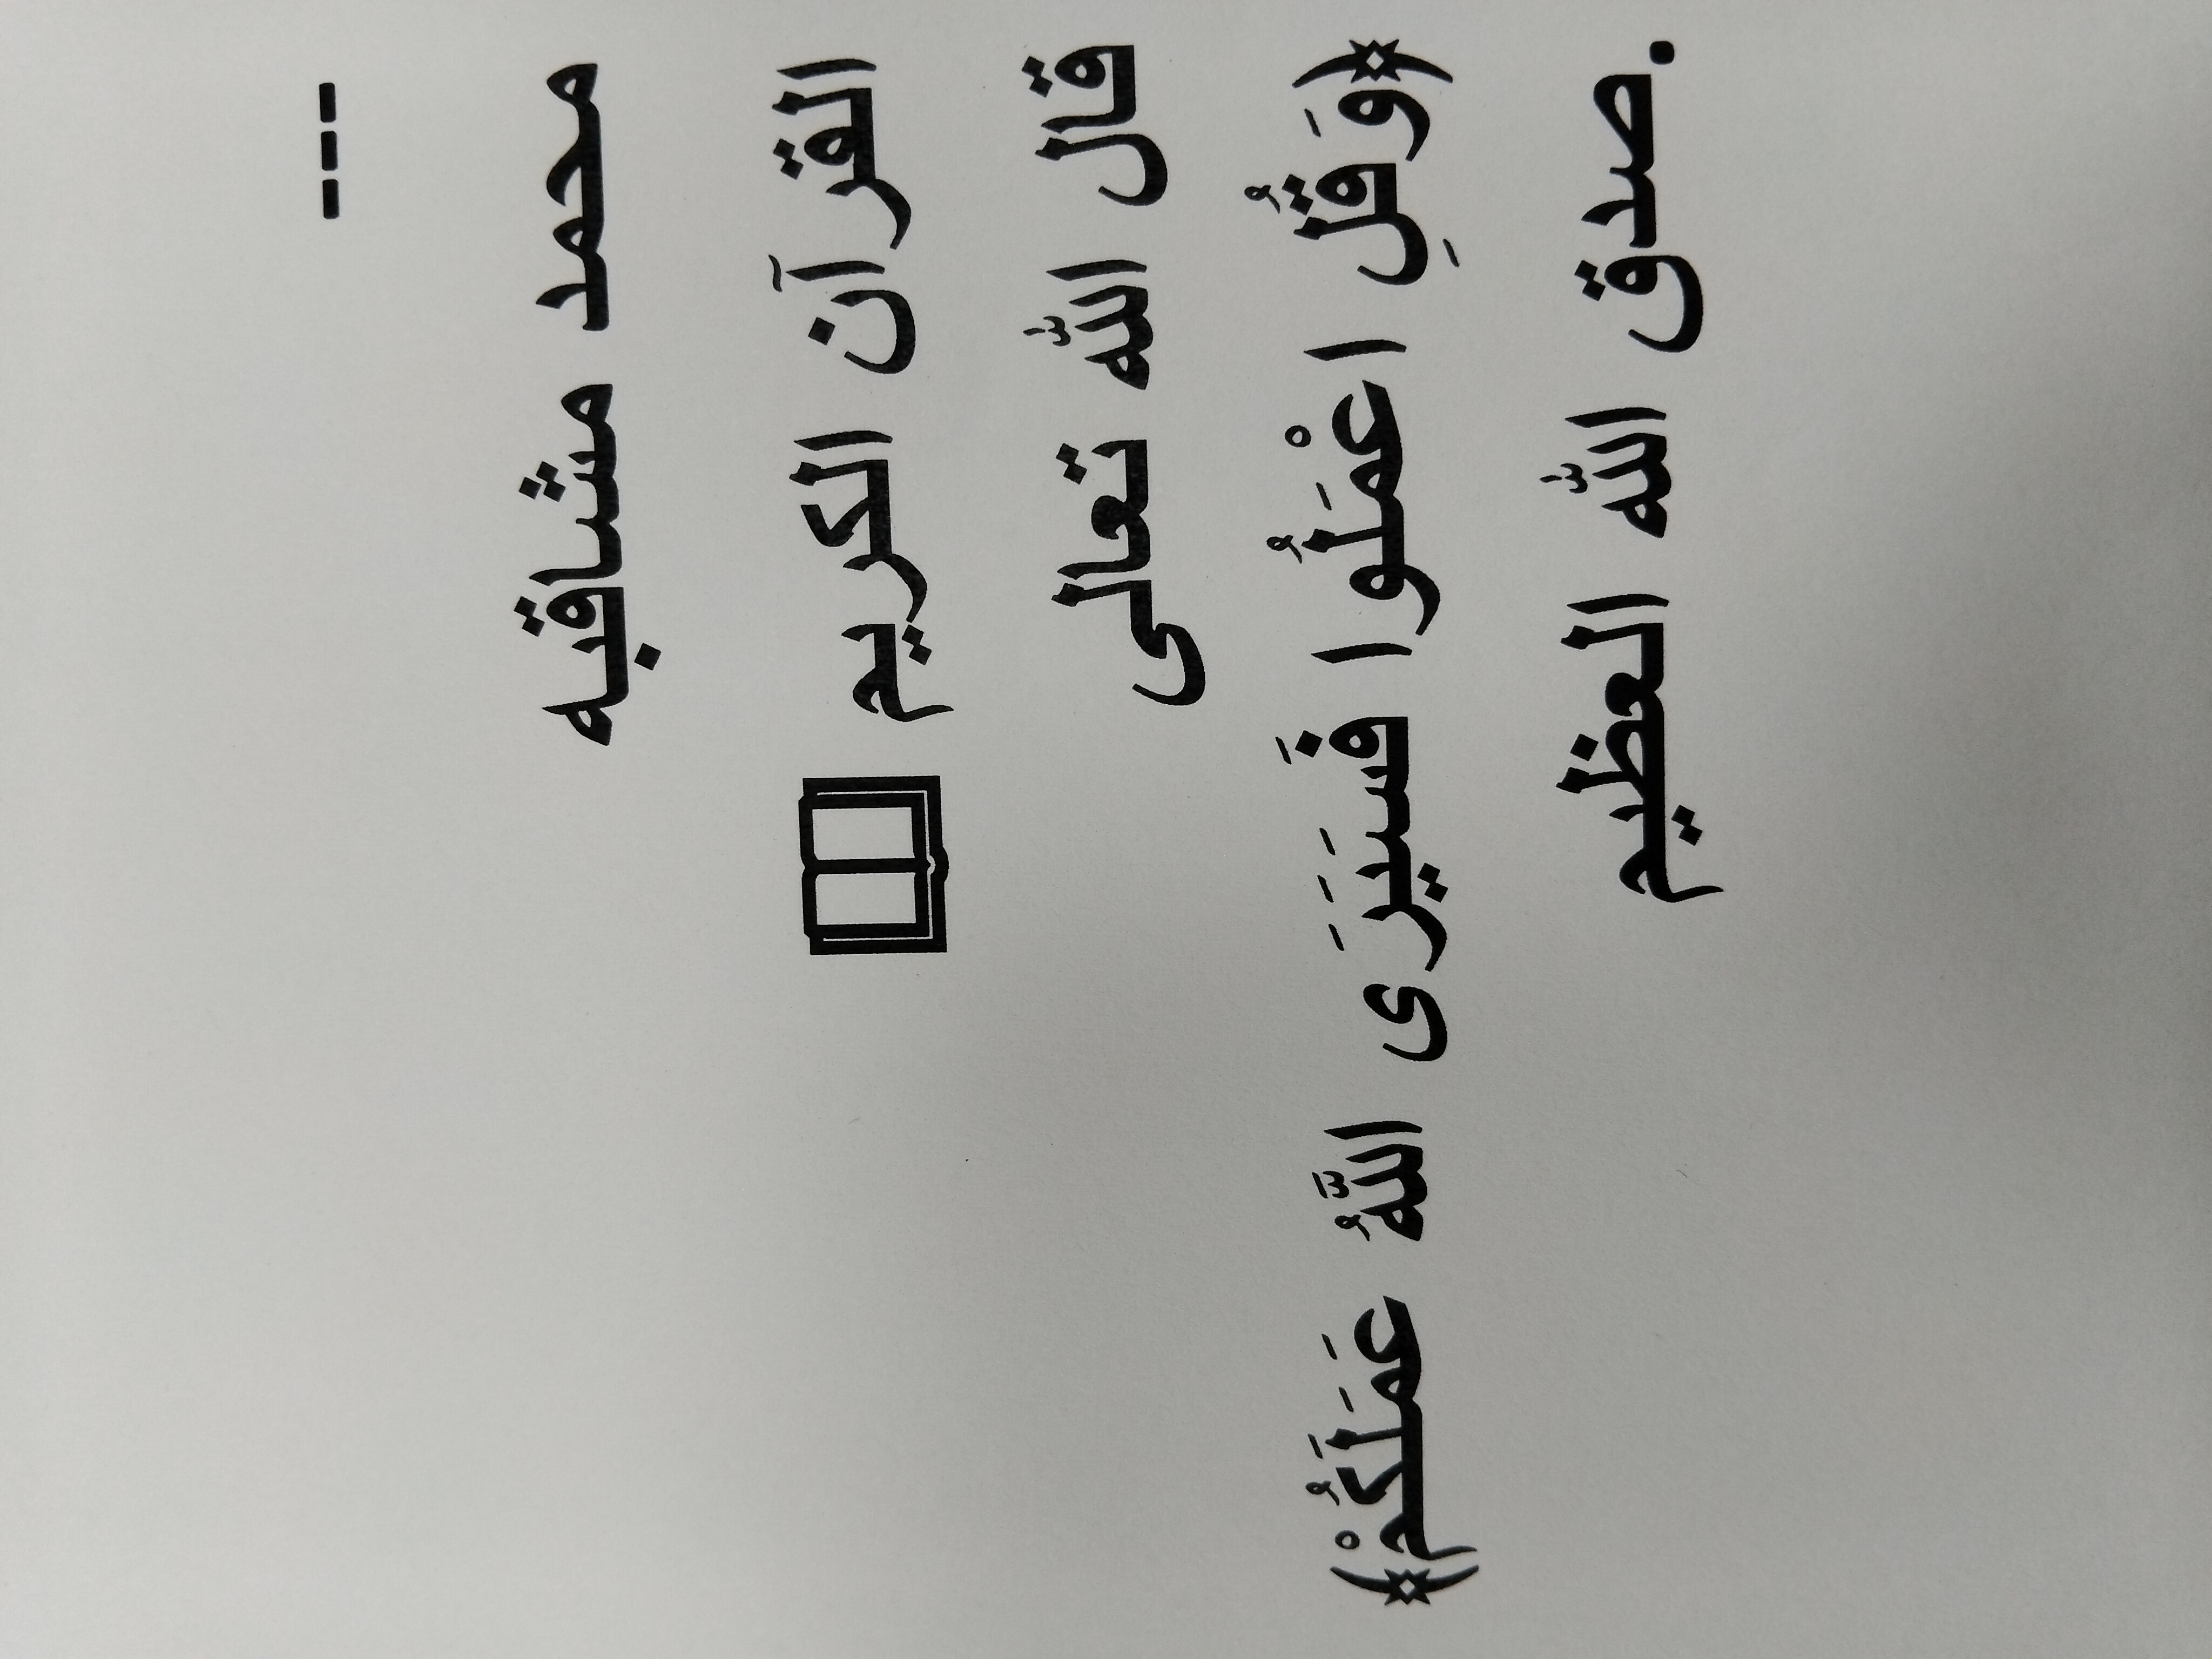 ---
محمد مشاقبه
القرآن الكريم 📖
قال الله تعالى
﴿وَقُلِ اعْمَلُوا فَسَيَرَى اللَّهُ عَمَلَكُمْ﴾
.صدق الله العظيم